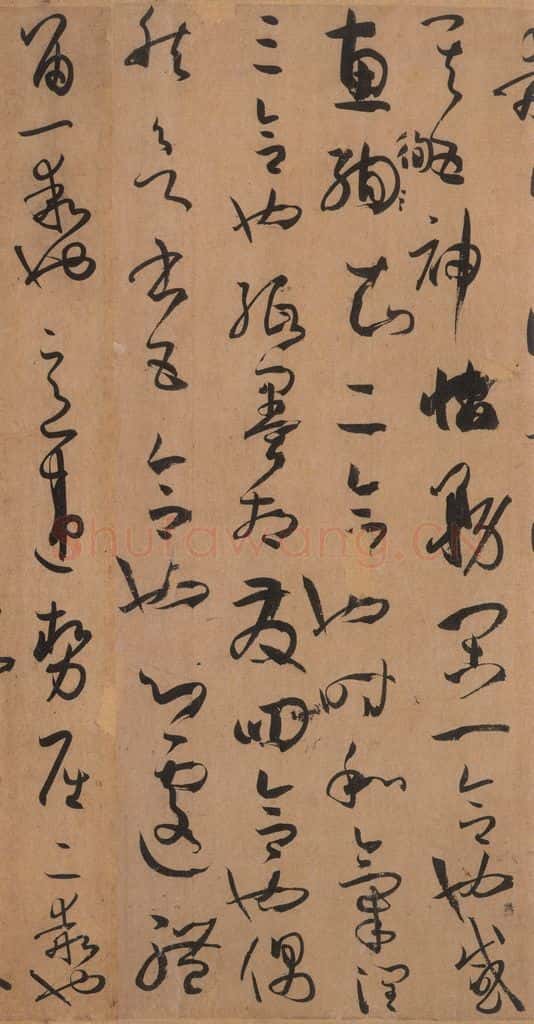 其五神怡務閑一合也感
惠徇知二合也時和氣潤
三合也紙墨相發四合也偶
然欲書五合也心遽體
留一乖也意違勢屈二乖也
shufawang.cn